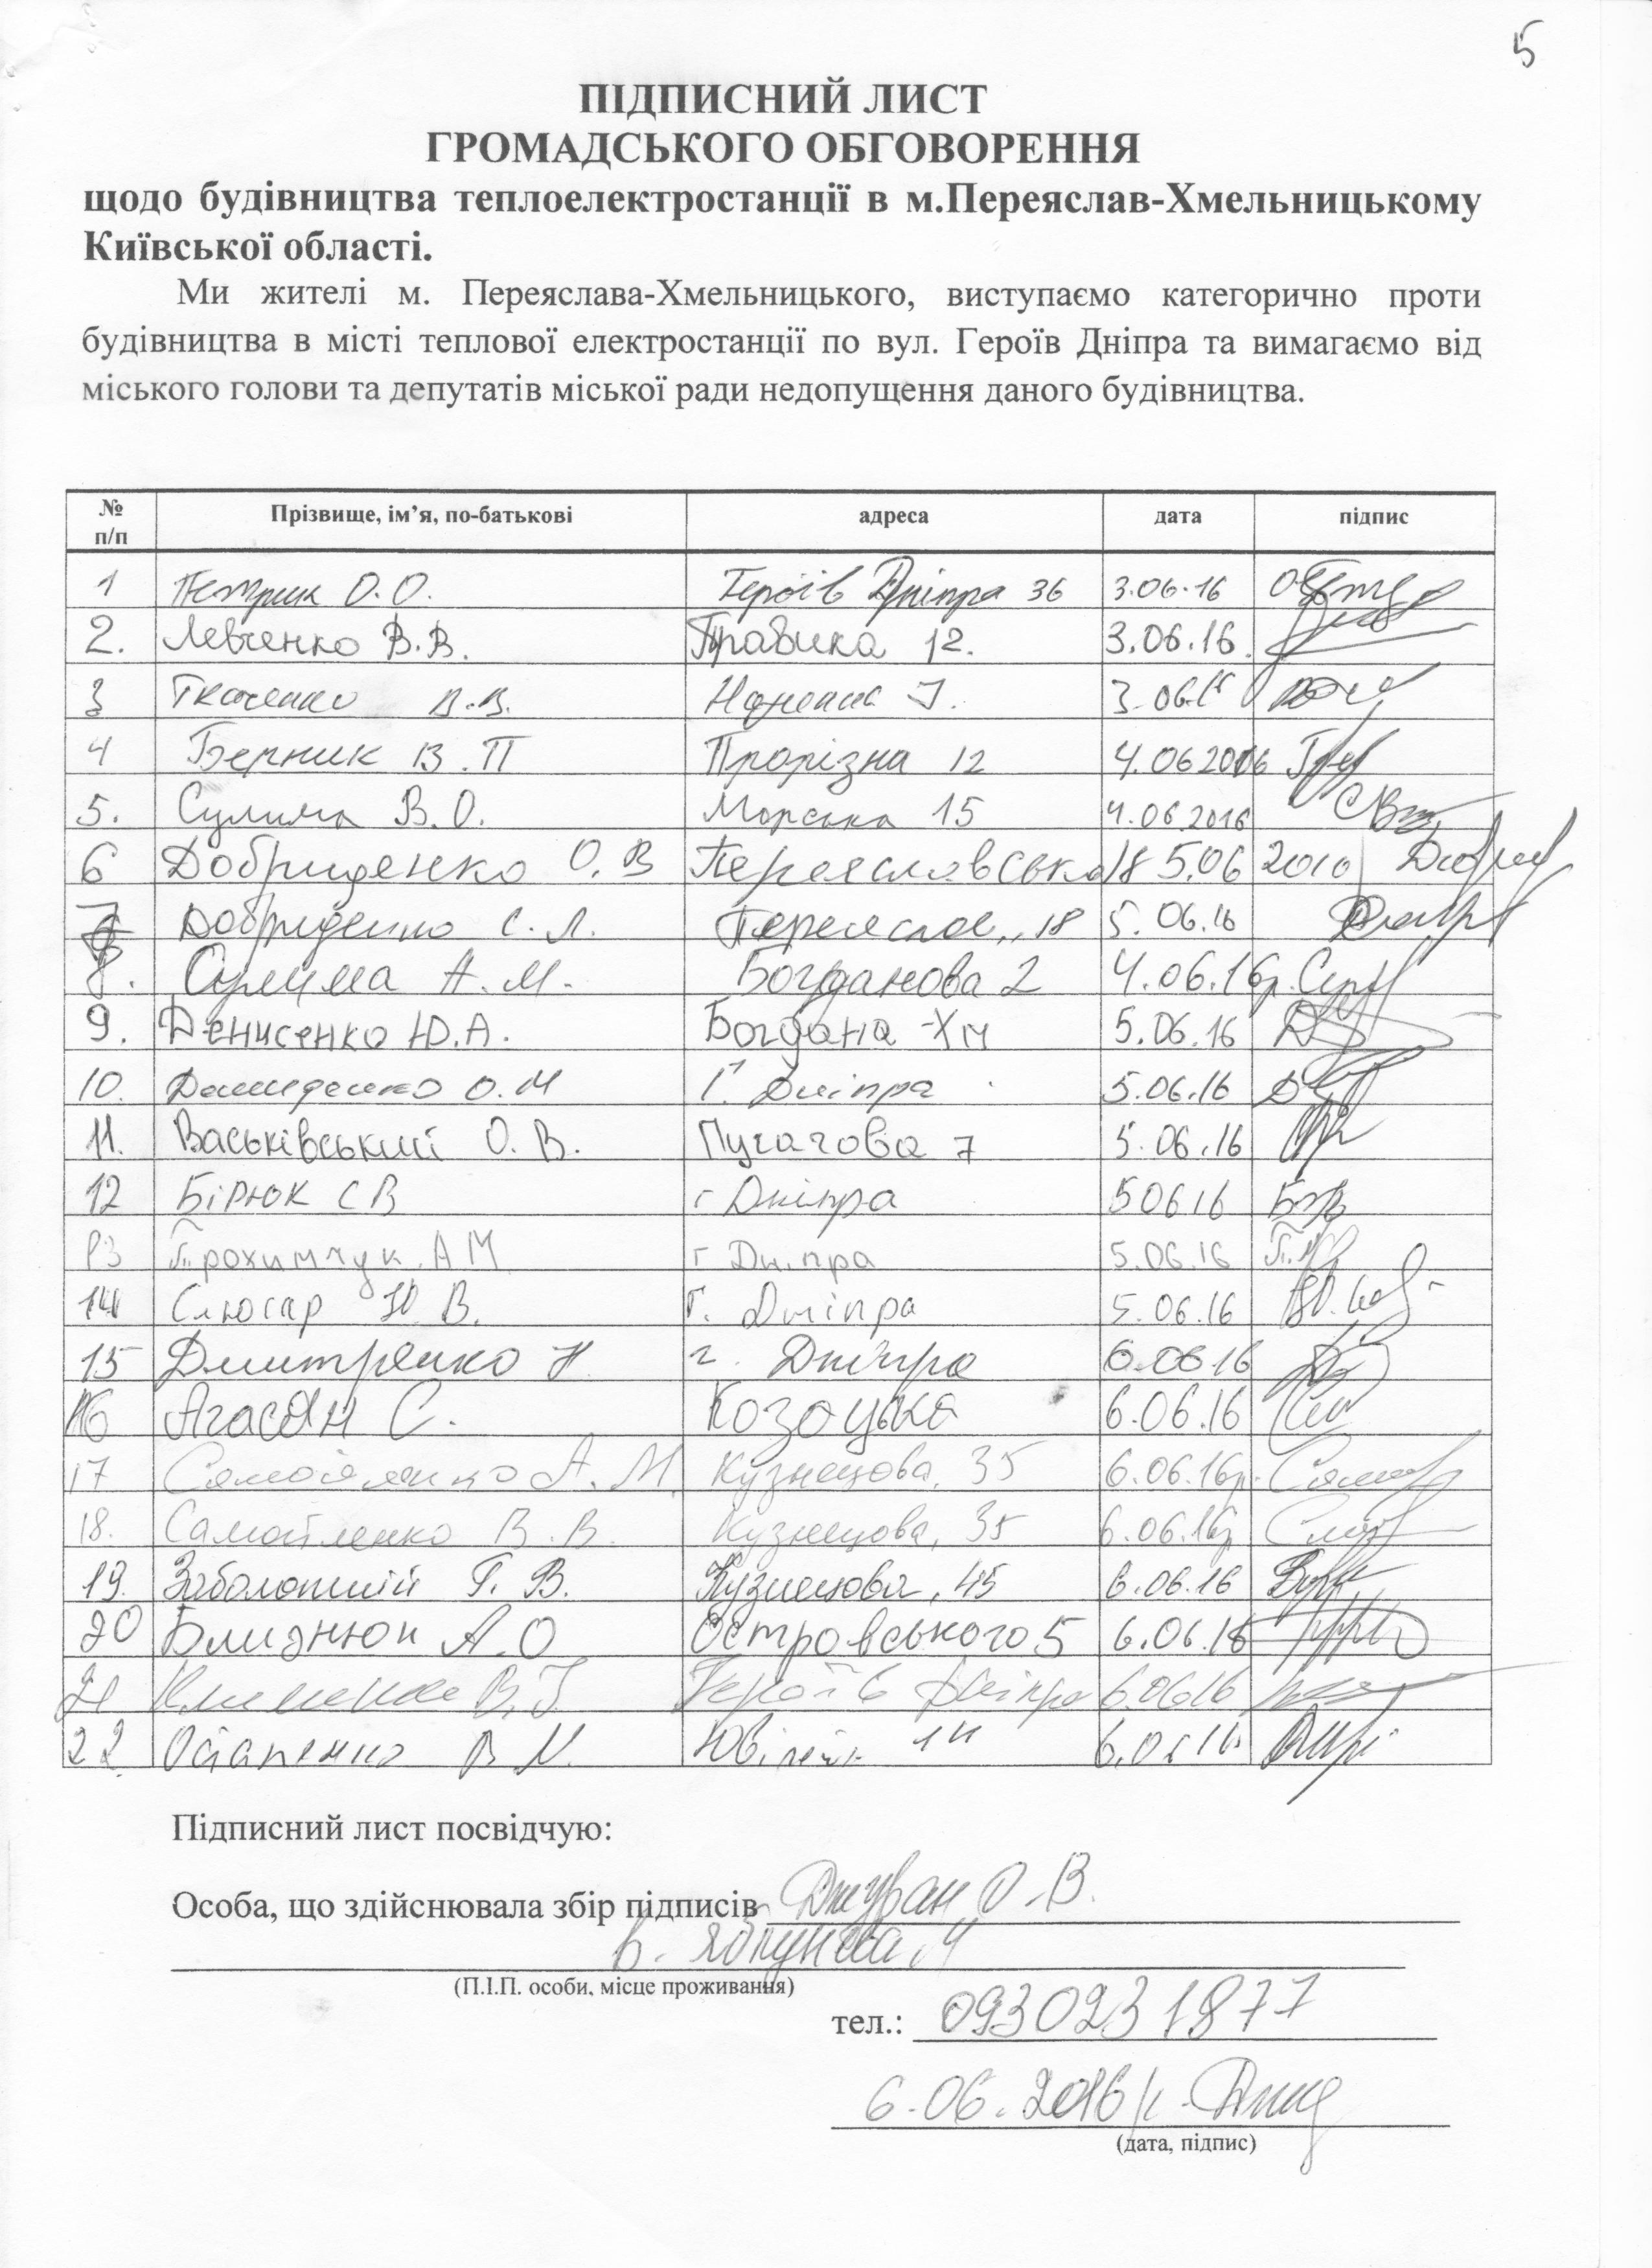 5
ПІДПИСНИЙ ЛИСТ
ГРОМАДСЬКОГО ОБГОВОРЕННЯ
щодо будівництва теплоелектростанції в м.Переяслав-Хмельницькому
Київської області.
Ми жителі м. Переяслава-Хмельницького, виступаємо категорично проти
будівництва в місті теплової електростанції по вул. Героїв Дніпра та вимагаємо від
міського голови та депутатів міської ради недопущення даного будівництва.
№ п/п Прізвище, ім’я, по-батькові адреса дата підпис
1 Петрик О.О. Героїв Дніпра 36 3.06.16
2. Левченко В.В. Правика 12. 3.06.16.
3 Ткаченко В.В. 3.06.16
4 Берник В.П Прорізна 12 4.06 2016
5. Сулима В.О. Морська 15 4.06.2016
6 Добриденко О.В Переяславська 18 5.06 2010
7 Добриденко С.Л. Переяслав,, 18 5.06.16
8. Сулима А.М. Богданова 2 4.06.16р.
9. Денисенко Ю.А. Богдана-Хм 5.06.16
10. О.М Г. Дніпра 5.06.16
11. Васьківський О.В. Пугачова 7 5.06.16
12 Бірюк С В г Дніпра 5 06 16
13 Трохимчук.А М г Дніпра 5.06.16
14 Слюсар Ю.В. Г. Дніпра 5.06.16
15 Дмитренко Н г. Дніпра 6.06 16
16 Агасян С. Козацька 6.06.16
17 Самойленко А.М. Кузнецова, 35 6.06.16р.
18. Самойленко В.В. Кузнецова, 35 6.06.16р
19. Заболотній Г.В. Кузнецова, 45 6.06.16
20 Близнюк А.О Островського 5 6.06.16
21 Клименко В. Героїв Дніпра 6.06 16
22 Остапенко В М. 6.06.16
Підписний лист посвідчую:
Особа, що здійснювала збір підписів О.В.
(П.І.П. особи, місце проживання)
тел.: 0930231877
6.06.2016
(дата, підпис)